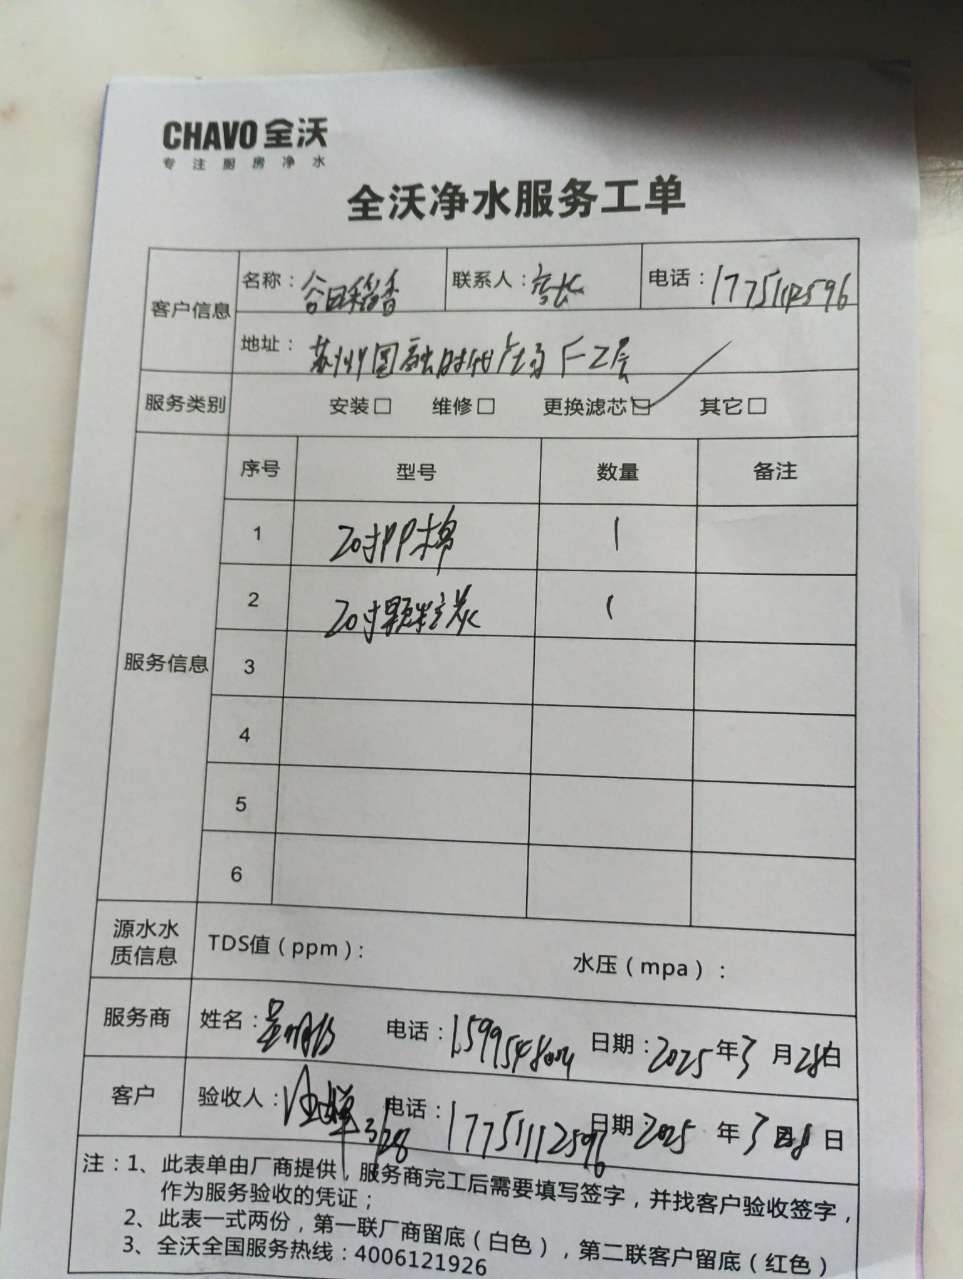 CHAVO 全沃
专注厨房净水
全沃净水服务工单
客户信息
名称：谷田稻香 联系人：店长 电话：
地址：苏州圆融时代广场 F2层
服务类别 安装□ 维修□ 更换滤芯☑ 其它□
服务信息
序号 型号 数量 备注
1 20寸PP棉 1
2 20寸颗粒炭 1
3
4
5
6
源水水质信息 TDS值（ppm）： 水压（mpa）：
服务商 姓名： 电话： 日期：2025年3月28日
客户 验收人： 3/28 电话：17751112596 日期 2025年3月28日
注：1、此表单由厂商提供，服务商完工后需要填写签字，并找客户验收签字，
作为服务验收的凭证；
2、此表一式两份，第一联厂商留底（白色），第二联客户留底（红色）
3、全沃全国服务热线：4006121926